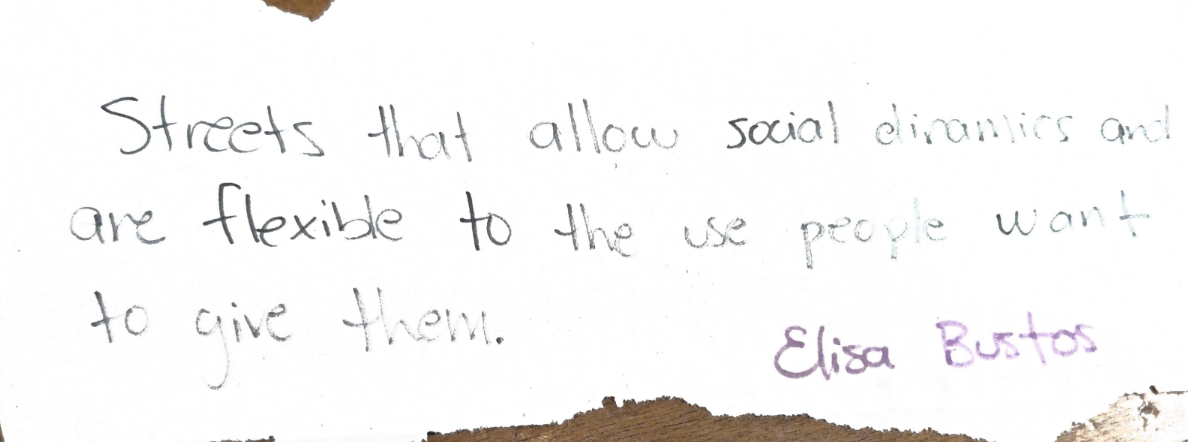 Streets that allow social dinamics and
are flexible to the use people want
to give them.
Elisa Bustos